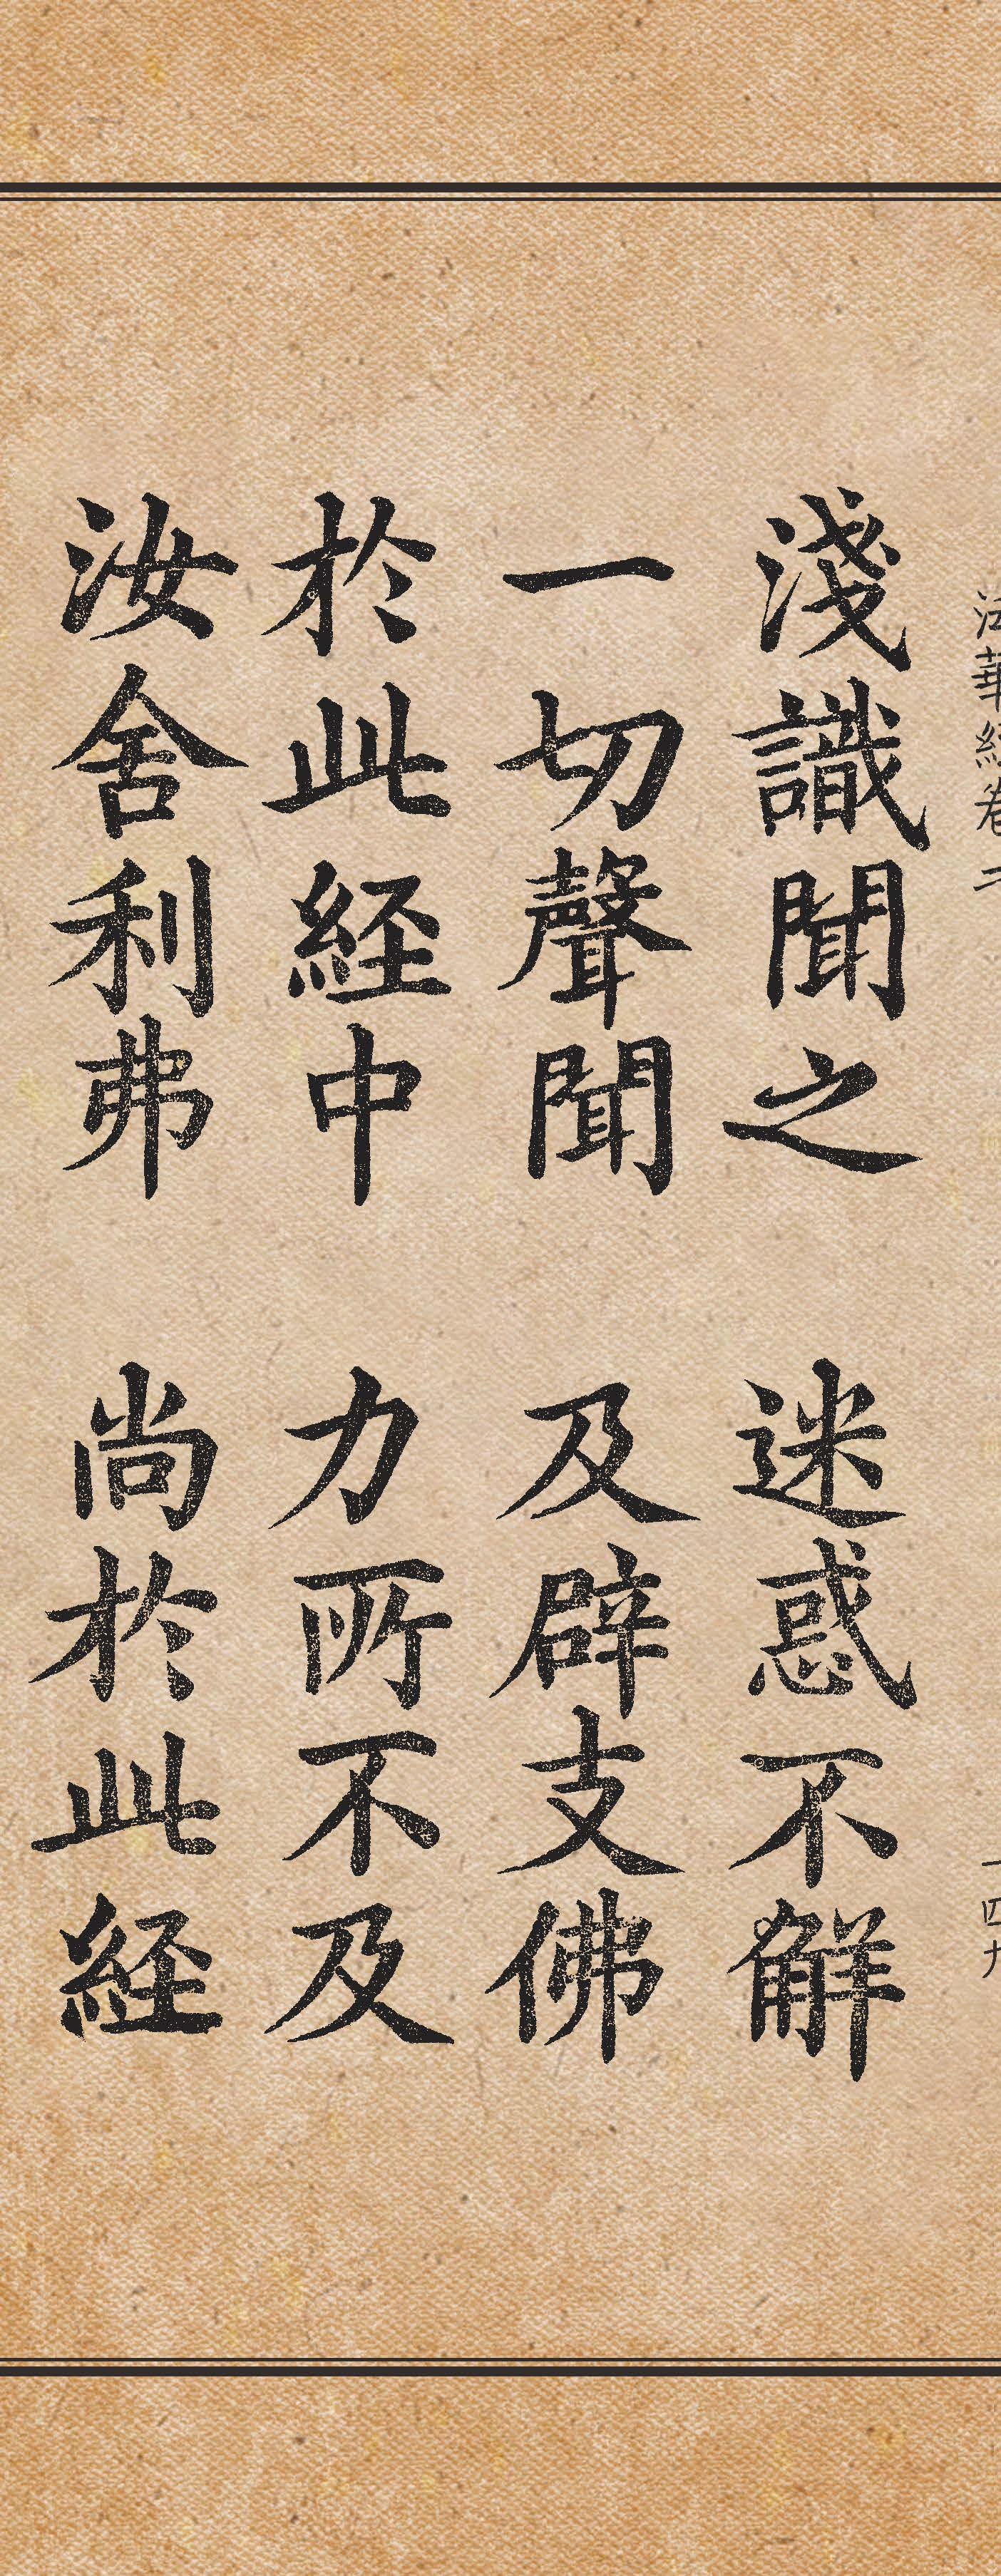 法華経卷二
一四九
淺識聞之 迷惑不解
一切聲聞 及辟支佛
於此経中 力所不及
汝舍利弗 尚於此経